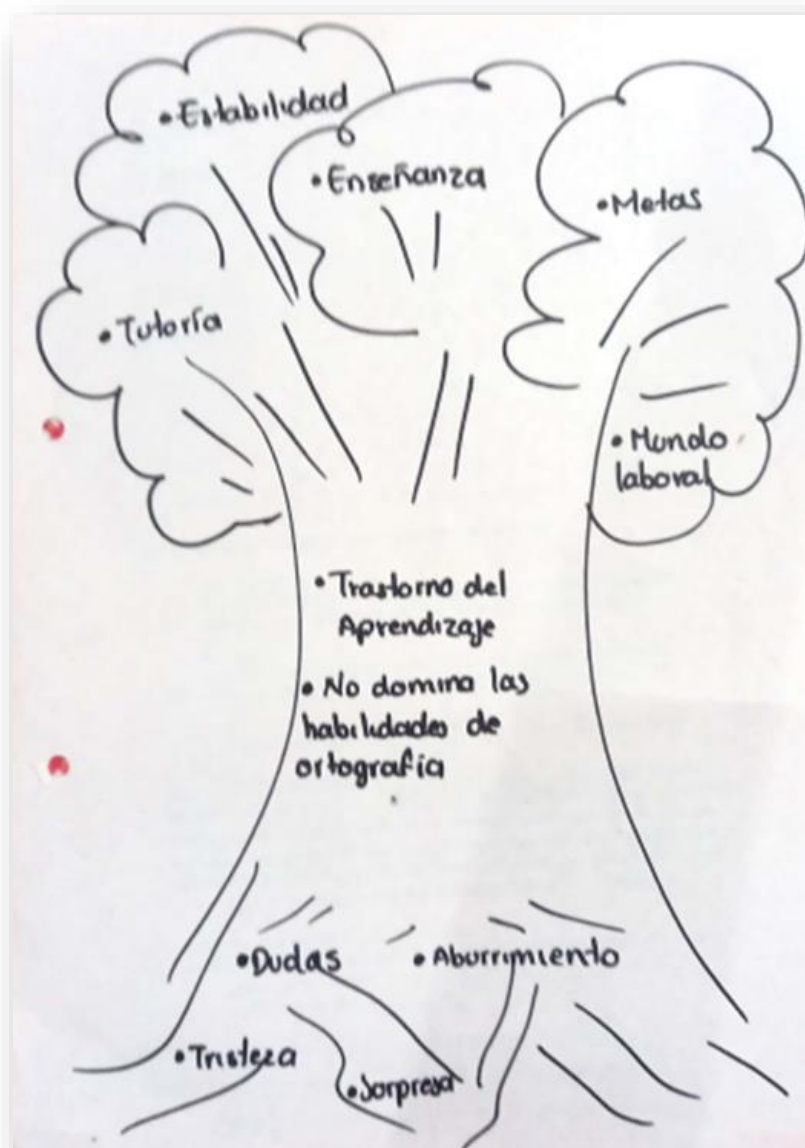 •Estabilidad
•Enseñanza
•Metas
•Tutoría
•Mundo
laboral
•Trastorno del
Aprendizaje
•No domina las
habilidades de
ortografía
•Dudas
•Aburrimiento
•Tristeza
•Sorpresa